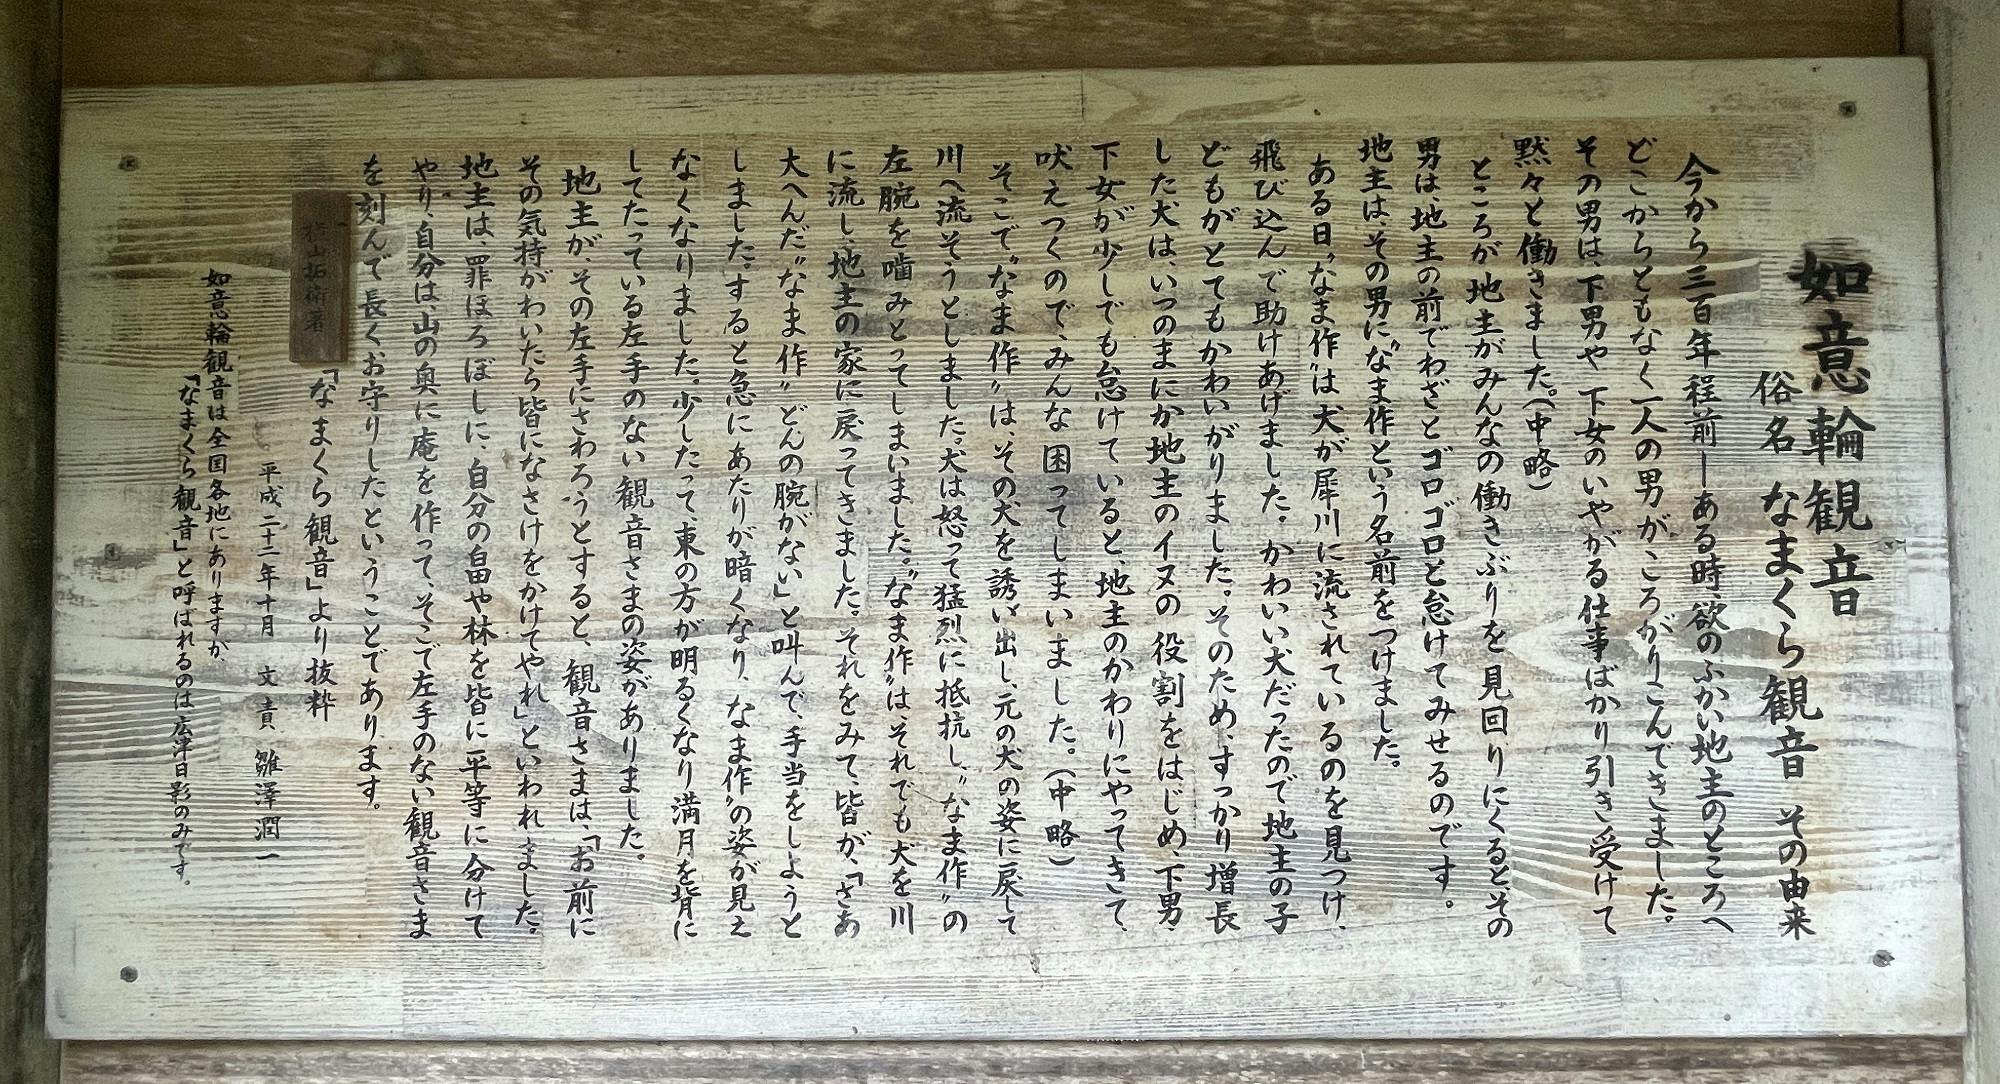 如意輪観音
俗名 なまくら観音 その由来
今から三百年程前―ある時欲のふかい地主のところへ
どこからともなく一人の男がころがりこんできました。
その男は、下男や下女のいやがる仕事ばかり引き受けて
黙々と働きました。(中略)
ところが地主がみんなの働きぶりを見回りにくるとその
男は、地主の前でわざとゴロゴロと怠けてみせるのです。
地主は、その男に〝なま作という名前をつけました。
ある日〝なま作〟は犬が犀川に流されているのを見つけ、
飛び込んで助けあげました。かわいい犬だったので地主の子
どもがとてもかわいがりました。そのため、すっかり増長
した犬は、いつのまにか地主のイヌの役割をはじめ、下男、
下女が少しでも怠けていると、地主のかわりにやってきて、
吠えつくので、みんな困ってしまいました。(中略)
そこで〝なま作〟は、その犬を誘い出し、元の犬の姿に戻して
川へ流そうとしました。犬は怒って猛烈に抵抗し、〝なま作〟の
左腕を噛みとってしまいました。〝なま作〟は、それでも犬を川
に流し、地主の家に戻ってきました。それをみて、皆が、「さあ
大へんだ〝なま作〟どんの腕がない」と叫んで、手当をしようと
しました。すると急にあたりが暗くなり、なま作〟の姿が見え
なくなりました。少したって東の方が明るくなり満月を背に
してたっている左手のない観音さまの姿がありました。
地主が、その左手にさわろうとすると、観音さまは、「お前に
その気持がわいたら皆になさけをかけてやれ」といわれました。
地主は、罪ほろぼしに、自分の畠や林を皆に平等に分けて
やり、自分は、山の奥に庵を作って、そこで左手のない観音さま
を刻んで長くお守りしたということであります。
山拓衛著「なまくら観音」より抜粋
平成二十二年十月 文責 雛澤潤一
如意輪観音は全国各地にありますが、
「なまくら観音」と呼ばれるのは広津日影のみです。